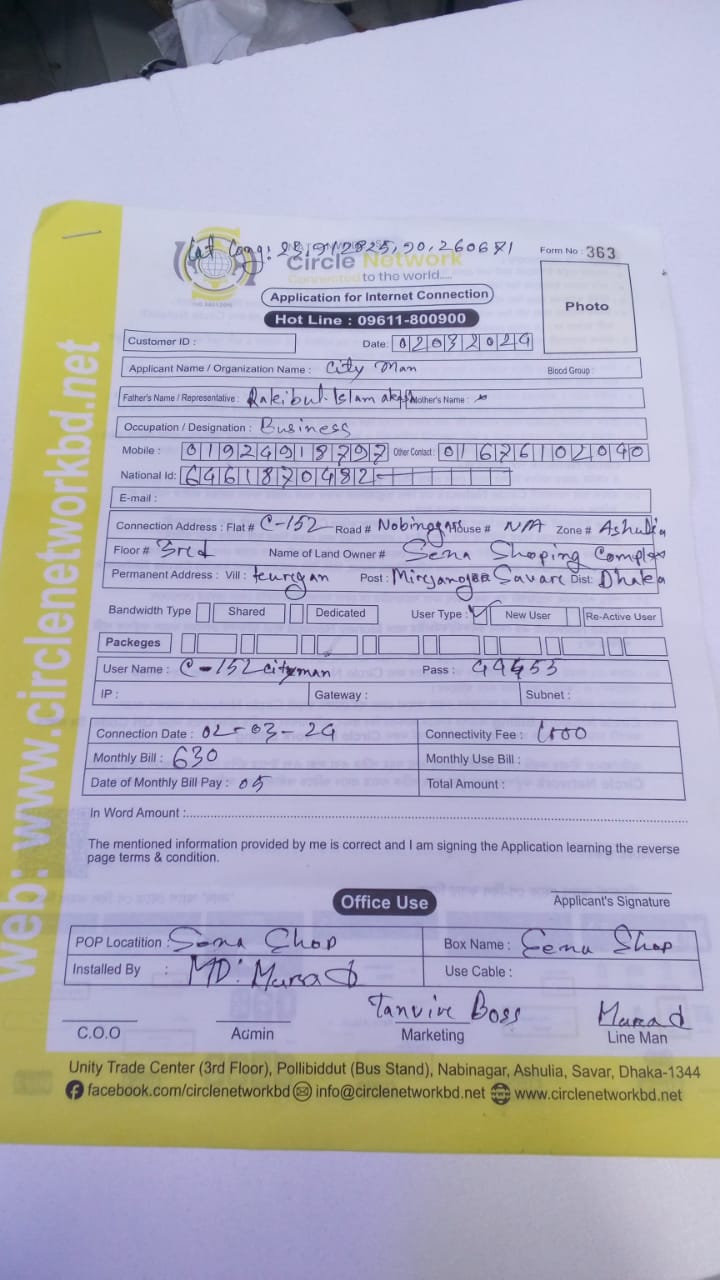 Lat Long: 23.912825, 90.260671
Form No : 363
Circle Network
Connected to the world.....
Application for Internet Connection
Photo
Hot Line : 09611-800900
Customer ID :
Date: 02032024
Applicant Name / Organization Name : City Man
Blood Group :
Father's Name / Representative : Rakibul Islam akash Mother's Name :
Occupation / Designation : Business
Mobile : 01924918797 Other Contact : 01676102040
National Id: 6461870482
E-mail :
Connection Address : Flat # C-152 Road # Nobinagar House # N/A Zone # Ashulia
Floor # 3red Name of Land Owner # Sena Shoping Complex
Permanent Address : Vill : Post : Savare Dist: Dhaka
Bandwidth Type Shared Dedicated User Type : New User Re-Active User
Packeges
User Name : C-152cityman Pass : 44455
IP : Gateway : Subnet :
Connection Date : 02-03-24 Connectivity Fee : 1000
Monthly Bill : 630 Monthly Use Bill :
Date of Monthly Bill Pay : 05 Total Amount :
In Word Amount :
The mentioned information provided by me is correct and I am signing the Application learning the reverse
page terms & condition.
Office Use
Applicant's Signature
POP Locatition : Sena Shop Box Name : Sena Shop
Installed By : MD: Murad Use Cable :
Tanvire Boss Murad
C.O.O Admin Marketing Line Man
Unity Trade Center (3rd Floor), Pollibiddut (Bus Stand), Nabinagar, Ashulia, Savar, Dhaka-1344
facebook.com/circlenetworkbd info@circlenetworkbd.net www.circlenetworkbd.net
web: www.circlenetworkbd.net